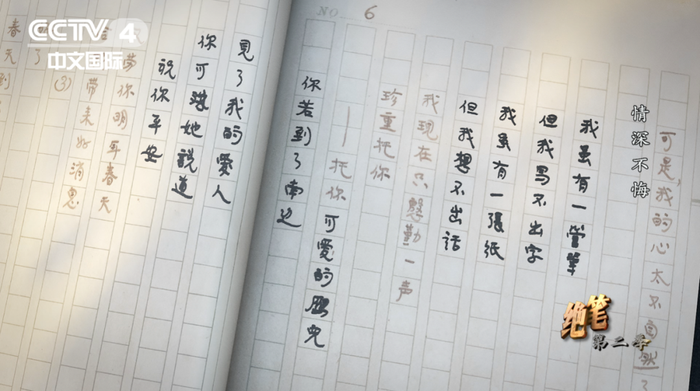 CCTV 4
中文国际
NO. 6
可是,我的心太不自然了
情深不悔
我虽有一管筆
但我写不出字
我虽有一張紙
但我想不出话
我现在只慇勤一声
珍重托你
——托你可爱的雁兒
你若到了南边
見了我的爱人
你可 她说道
说你平安
你明年春天
带来好消息
(3)
了
春天到
绝笔
第二季